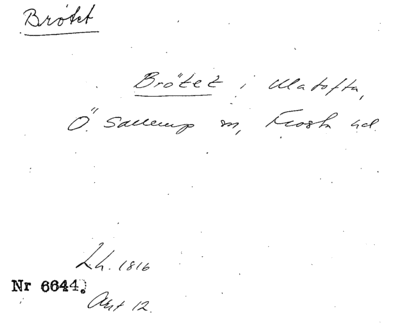 Brötet
Brötet i Matofta,
Ö. Sallerup sn, Frosta hd.
Lh. 1816
Nr 6644.
Akt 12.